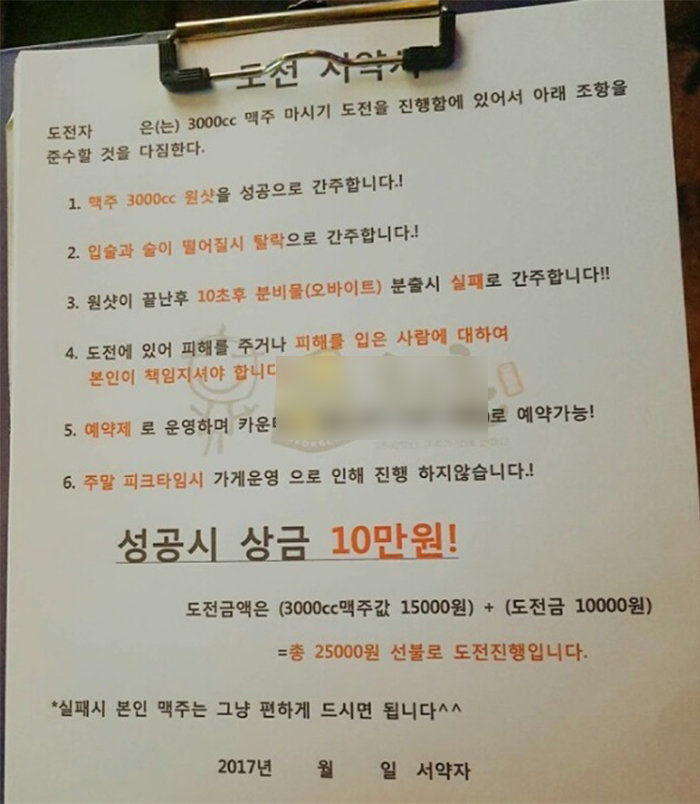 도전 서약서
도전자 은(는) 3000cc 맥주 마시기 도전을 진행함에 있어서 아래 조항을
준수할 것을 다짐한다.
1. 맥주 3000cc 원샷을 성공으로 간주합니다.!
2. 입술과 술이 떨어질시 탈락으로 간주합니다.!
3. 원샷이 끝난후 10초후 분비물(오바이트) 분출시 실패로 간주합니다!!
4. 도전에 있어 피해를 주거나 피해를 입은 사람에 대하여
본인이 책임지셔야 합니다
5. 예약제 로 운영하며 카운터 )로 예약가능!
6. 주말 피크타임시 가게운영 으로 인해 진행 하지않습니다.!
성공시 상금 10만원!
도전금액은 (3000cc맥주값 15000원) + (도전금 10000원)
=총 25000원 선불로 도전진행입니다.
*실패시 본인 맥주는 그냥 편하게 드시면 됩니다^^
2017년 월 일 서약자